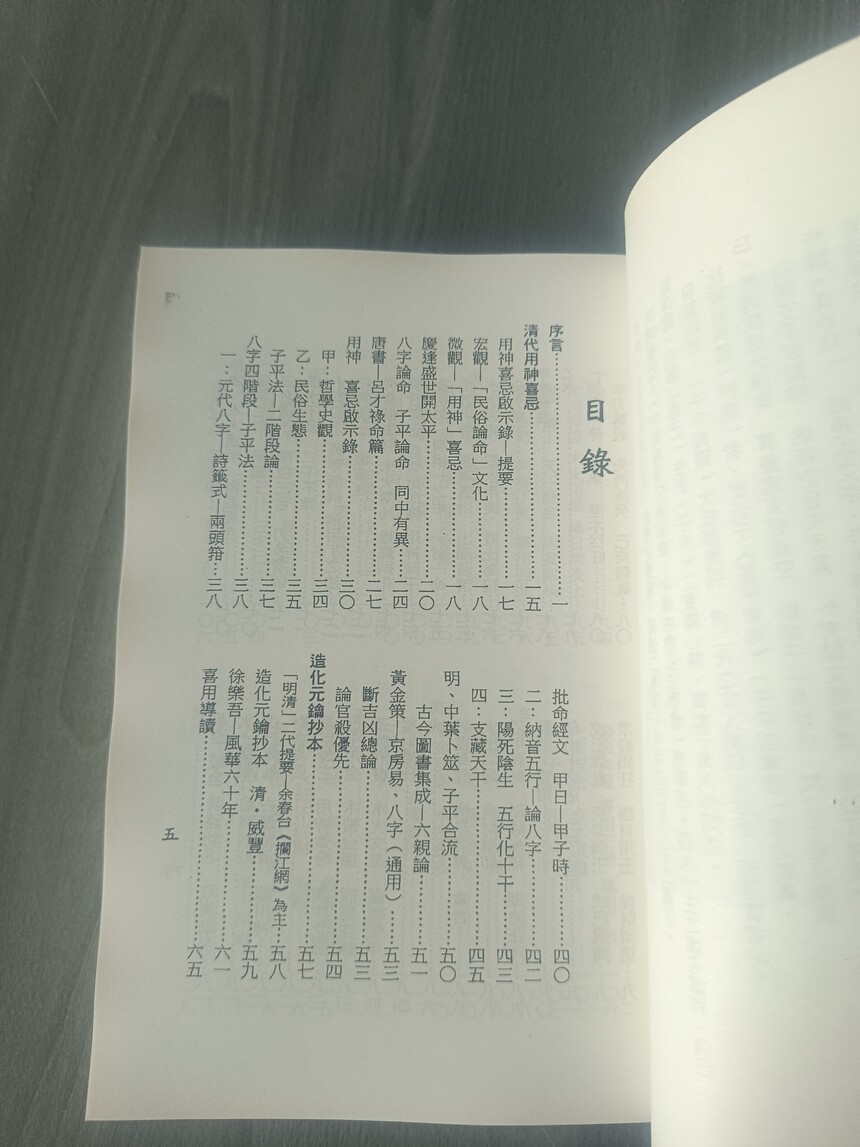 目錄
序言……一
清代用神喜忌……一五
用神喜忌啟示錄—提要……一七
宏觀—「民俗論命」文化……一八
微觀—「用神」喜忌……一八
慶逢盛世開太平……二〇
八字論命　子平論命　同中有異……二四
唐書—呂才祿命篇……二七
用神　喜忌啟示錄……三〇
甲：哲學史觀……三四
乙：民俗生態……三五
子平法—二階段論……三七
八字四階段—子平法……三八
一：元代八字—詩籤式—兩頭箝…三八
批命經文　甲日—甲子時……四〇
二：納音五行—論八字……四二
三：陽死陰生　五行化十干……四三
四：支藏天干……四五
明、中葉卜筮、子平合流……五〇
古今圖書集成—六親論……五一
黃金策—京房易、八字（通用）……五三
斷吉凶總論……五三
論官殺優先……五四
造化元鑰抄本……五七
「明清」二代提要—余春台《攔江網》為主…五八
造化元鑰抄本　清・威豐……五九
徐樂吾—風華六十年……六一
喜用導讀……六五
五